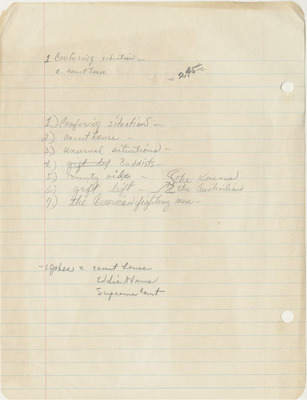 1 Confusing situation —
a. court house
— 245 —
1.) Confusing situation —
2) court house —
3.) unusual situations —
4.) gift Buddists —
5) county side — the Koreans
6) gift left — the Australian
7.) the American fighting men —
jokes = court house
Eddie Adams
Supreme Court